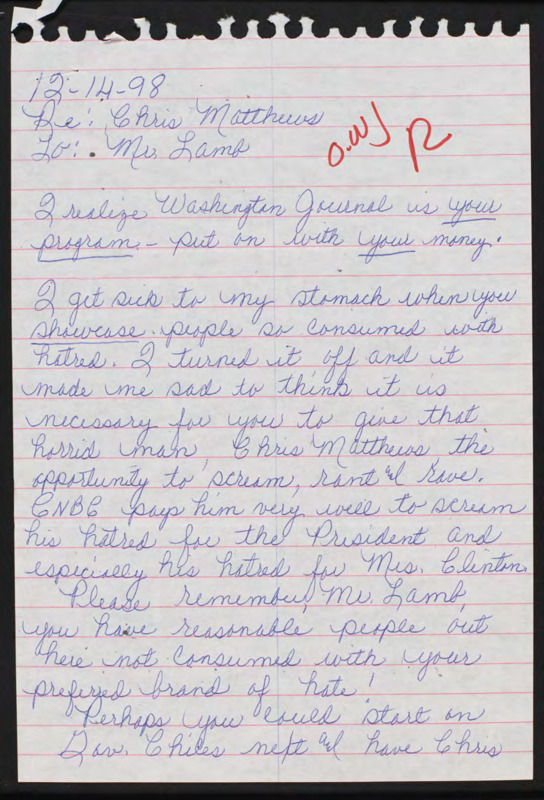 12-14-98
Re: Chris Matthews
To: Mr. Lamb
O.W.J R
I realize Washington Journal is your
program - put on with your money.
I get sick to my stomach when you
showcase people so consumed with
hatred. I turned it off and it
made me sad to think it is
necessary for you to give that
horrid man, Chris Matthews, the
opportunity to scream, rant & rave.
CNBC pays him very well to scream
his hatred for the President and
especially his hatred for Mrs. Clinton.
Please remember, Mr. Lamb,
you have reasonable people out
here not consumed with your
preferred brand of hate!
Perhaps you could start on
Gov. Chiles next & have Chris